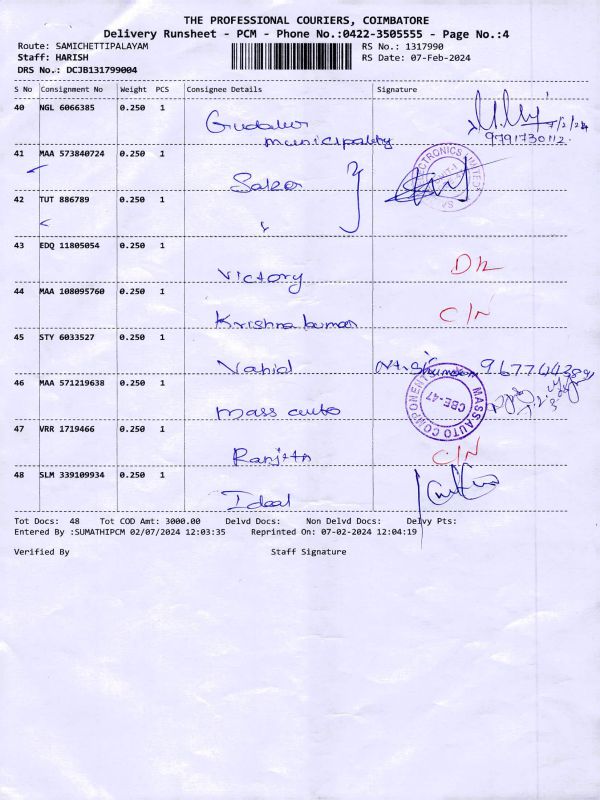 THE PROFESSIONAL COURIERS, COIMBATORE
Delivery Runsheet - PCM - Phone No.:0422-3505555 - Page No.:4
Route: SAMICHETTIPALAYAM RS No.: 1317990
Staff: HARISH RS Date: 07-Feb-2024
DRS No.: DCJB131799004
S No Consignment No Weight PCS Consignee Details Signature
40 NGL 6066385 0.250 1 Gudalur
municipality
9791730112
41 MAA 573840724 0.250 1
42 TUT 886789 0.250 1
43 EDQ 11805054 0.250 1 Victory DL
44 MAA 108095760 0.250 1 Krishna kumar C/N
45 STY 6033527 0.250 1 Vahid
46 MAA 571219638 0.250 1 mass auto
MASS AUTO COMPONENTS
CBE-47
47 VRR 1719466 0.250 1 Ranjith C/N
48 SLM 339109934 0.250 1 Ideal
Tot Docs: 48 Tot COD Amt: 3000.00 Delvd Docs: Non Delvd Docs: Delvy Pts:
Entered By :SUMATHIPCM 02/07/2024 12:03:35 Reprinted On: 07-02-2024 12:04:19
Verified By Staff Signature